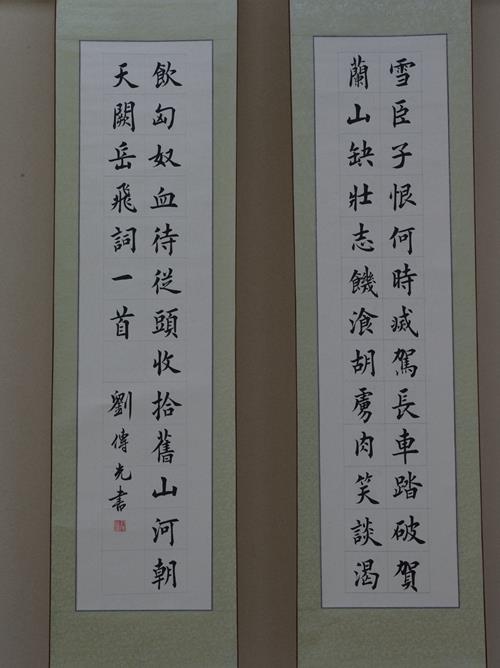 雪臣子恨何時滅駕長車踏破賀
蘭山缺壯志饑湌胡虜肉笑談渴
飲匈奴血待從頭收拾舊山河朝
天闕岳飛詞一首 劉傳光書